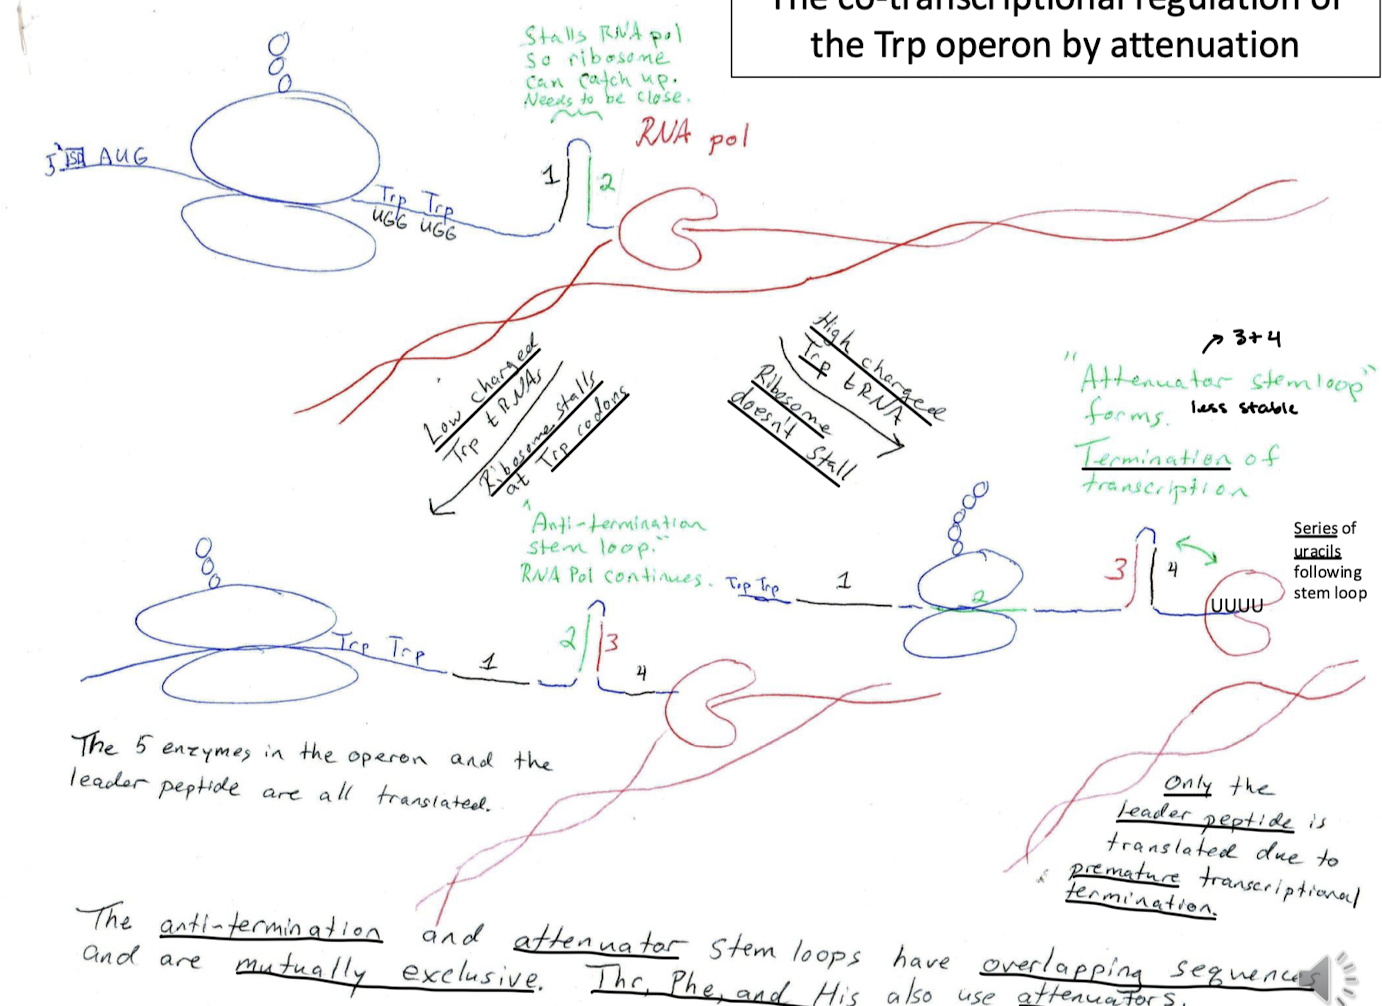 The co-transcriptional regulation of
the Trp operon by attenuation
Stalls RNA pol
so ribosome
can catch up.
Needs to be close.
RNA pol
5' SD AUG
Trp Trp
UGG UGG
1
2
Low charged
Trp tRNAs
Ribosome stalls
at Trp codons
High charged
Trp tRNA
Ribosome
doesn't stall
3+4
"Attenuator stem loop"
forms. less stable
Termination of
transcription
"Anti-termination
stem loop."
RNA Pol continues.
Trp Trp
1
2
3
4
UUUU
Series of
uracils
following
stem loop
Trp Trp
1
2
3
4
The 5 enzymes in the operon and the
leader peptide are all translated.
Only the
leader peptide is
translated due to
premature transcriptional
termination.
The anti-termination and attenuator stem loops have overlapping sequences
and are mutually exclusive. Thr, Phe, and His also use attenuators.